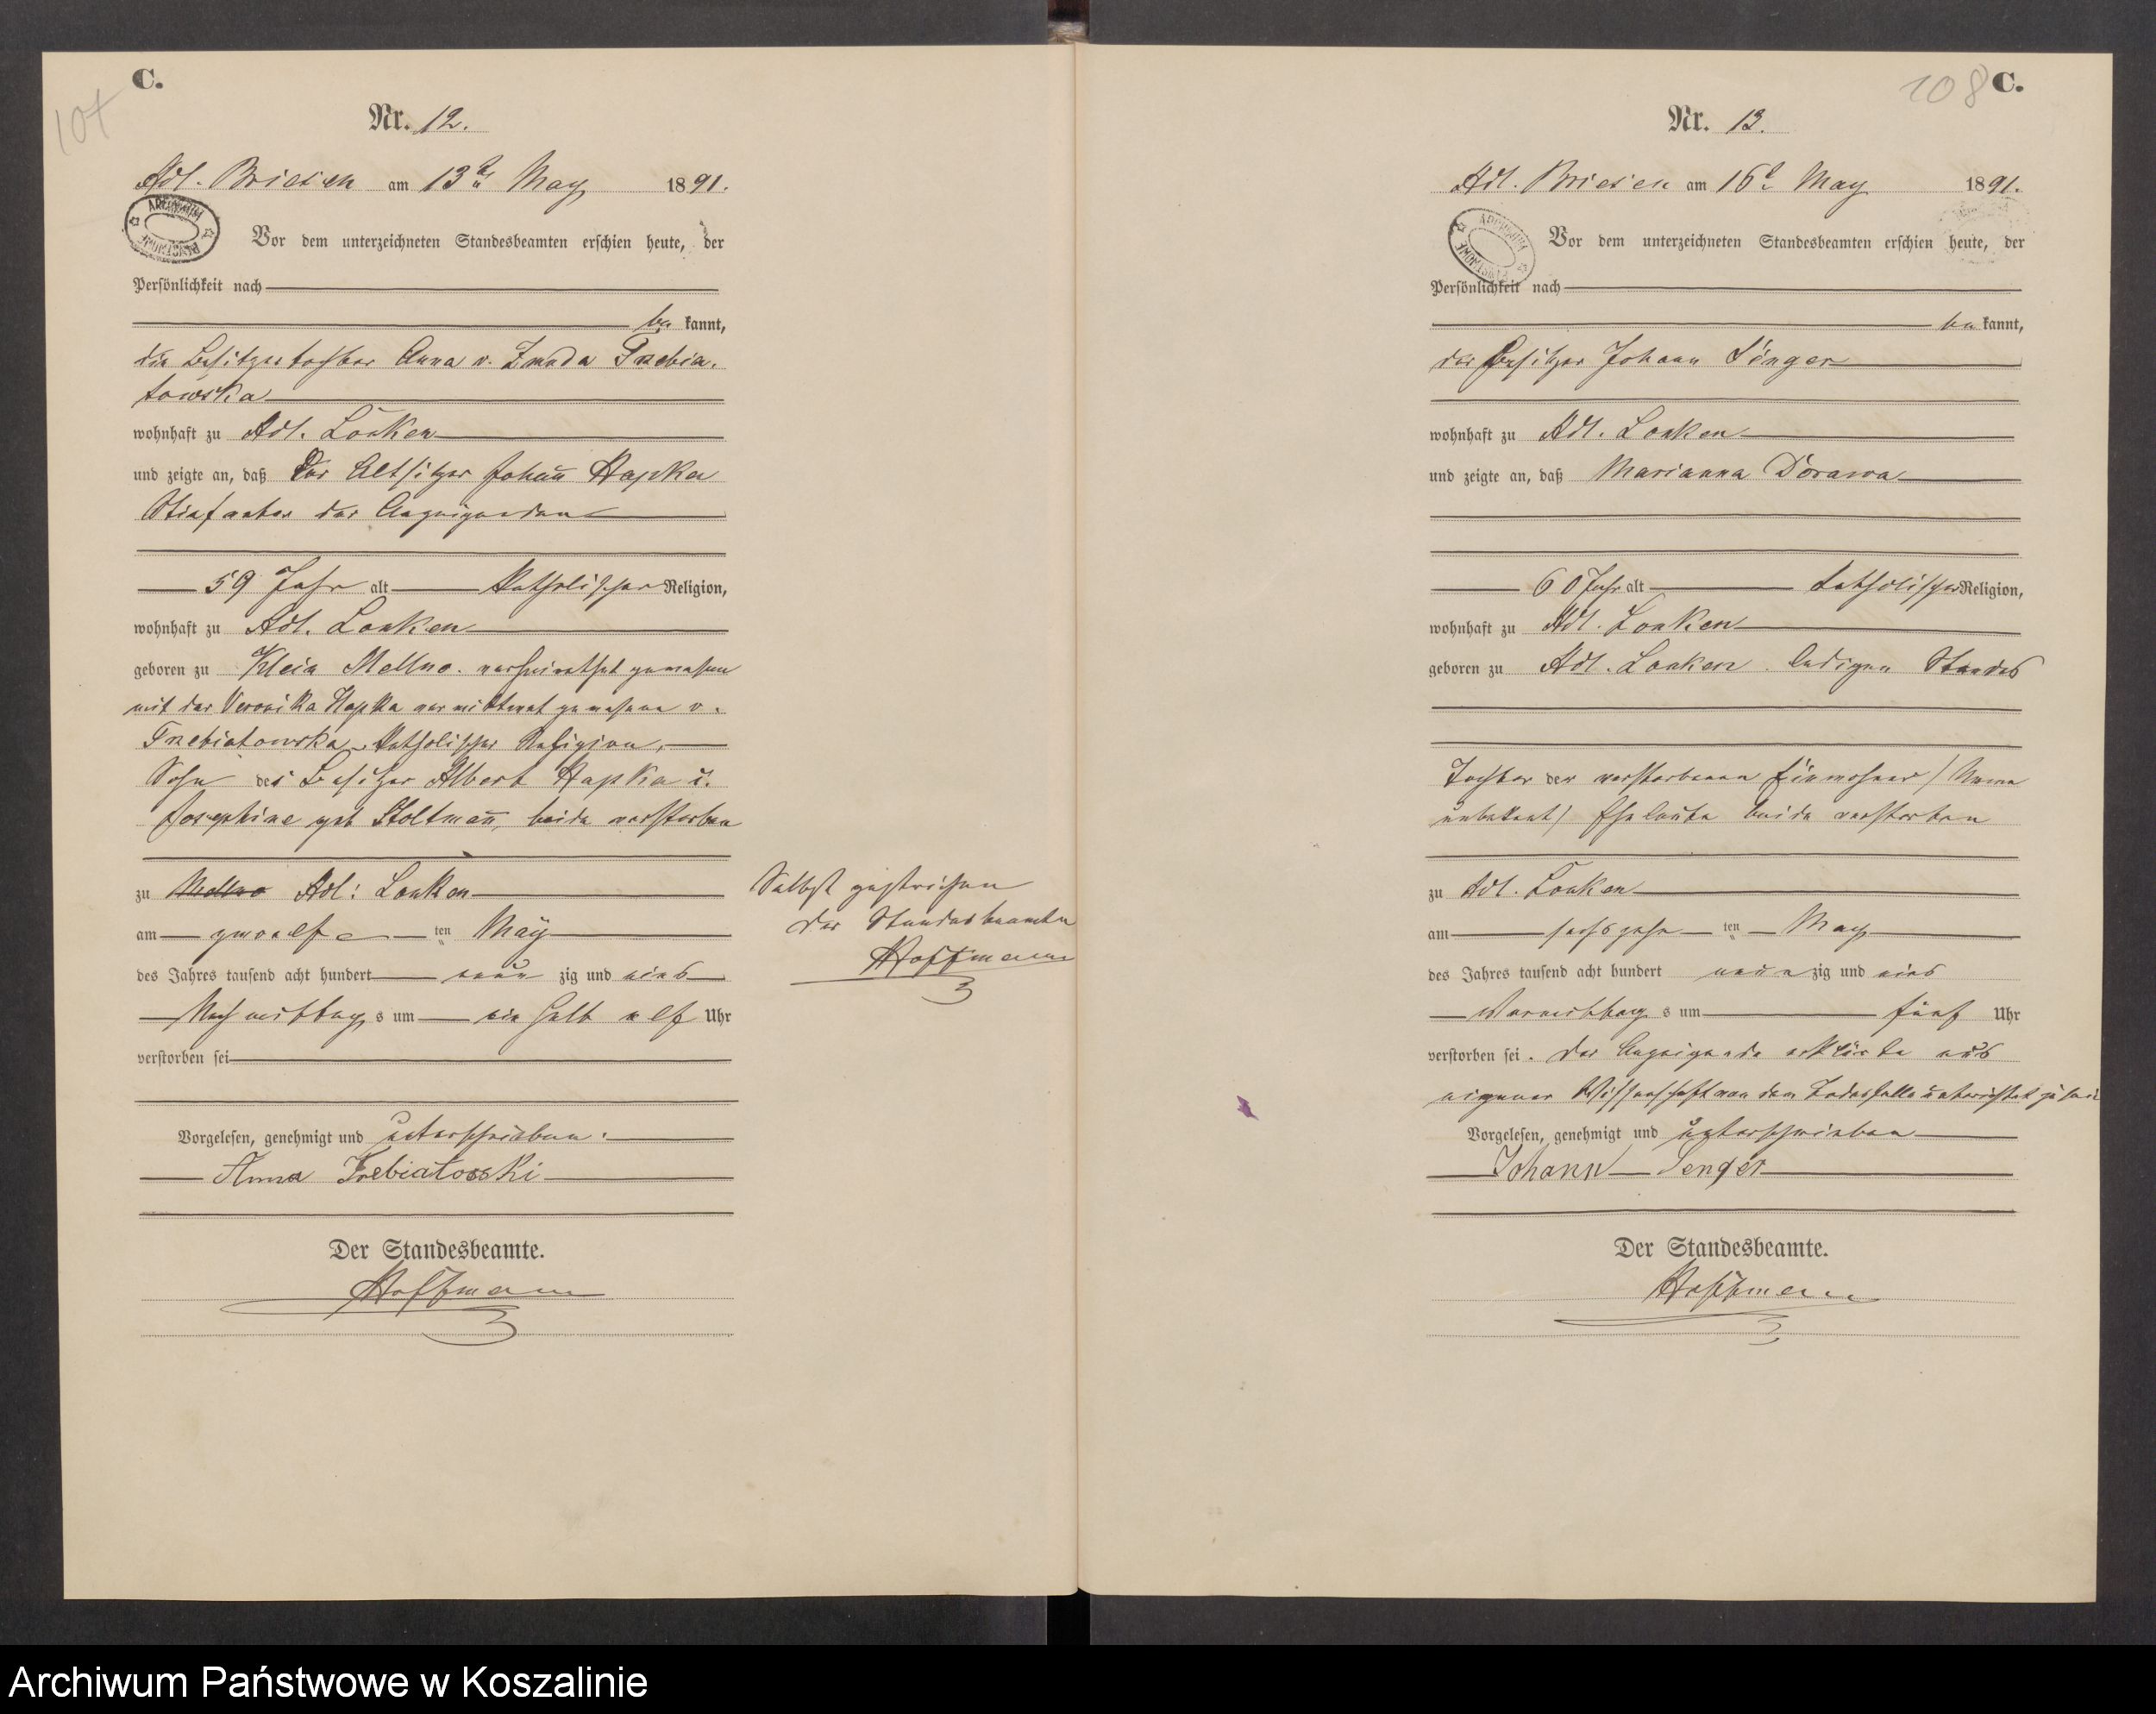 107
C.
Nr. 12.
Adl. Briesen am 13ten May 1891.
ARCHIWUM PAŃSTWOWE
Vor dem unterzeichneten Standesbeamten erschien heute, der
Persönlichkeit nach
be kannt,
die Besitzertochter Anna v. Zmuda Trzebia.
towska
wohnhaft zu Adl. Lonken
und zeigte an, daß der Altsitzer Johann̄ Hapka
Stiefvater der Anzeigenden
59 Jahr alt Katholischer Religion,
wohnhaft zu Adl. Lonken
geboren zu Klein Mellno. verheirathet gewesen
mit der Veronika Hapka verwittwet gewesene v.
Trzebiatowska, Katholischer Religion,
Sohn des Besitzer Albert Hapka u.
Josephine geb Stoltman̄, beide verstorben
zu Mellno Adl: Lonken
am zwoelf ten May
des Jahres tausend acht hundert neun zig und eins
Nachmittag s um ein halb elf Uhr
verstorben sei
Vorgelesen, genehmigt und unterschrieben.
Anna Trebiatosski
Der Standesbeamte.
Hoffmann
Selbst gestrichen
der Standesbeamte
Hoffmann
108
C.
Nr. 13.
Adl. Briesen am 16t May 1891.
ARCHIWUM PAŃSTWOWE
Vor dem unterzeichneten Standesbeamten erschien heute, der
Persönlichkeit nach
be kannt,
der Besitzer Johann Sänger
wohnhaft zu Adl. Lonken
und zeigte an, daß Marianna Dorawa
60 Jahr alt katholischer Religion,
wohnhaft zu Adl. Lonken
geboren zu Adl. Lonken. ledigen Standes
Tochter der verstorbenen Einwohner / Name
unbekant / Eheleute beide verstorben
zu Adl. Lonken
am sechszehn ten May
des Jahres tausend acht hundert neun zig und eins
Vormittag s um fünf Uhr
verstorben sei. Der Anzeigende erklärte aus
eigener Wissenschaft von dem Todesfalle unterrichtet zu sein
Vorgelesen, genehmigt und unterschrieben
Johann Senger
Der Standesbeamte.
Hoffmann
Archiwum Państwowe w Koszalinie